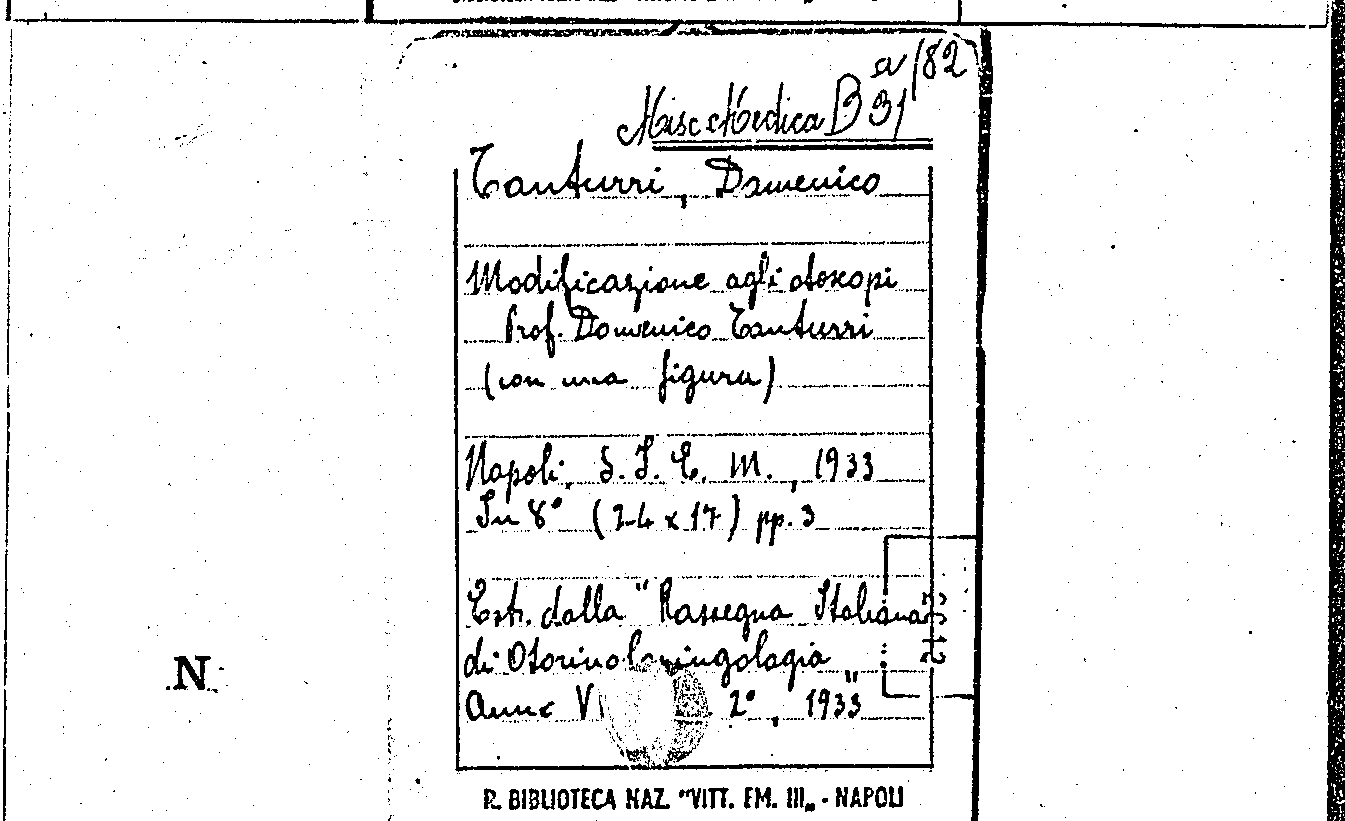 a/82
Misc Medica B 31
Tanturri, Domenico
Modificazione agli otoscopi
Prof. Domenico Tanturri
(con una figura)
Napoli, S. I. E. M., 1933
In 8° (24 x 17) pp. 3
Estr. dalla "Rassegna Italiana
di Otorinolaringologia"
Anno V 2°, 1933
N
R. BIBLIOTECA NAZ. "VITT. EM. III„ - NAPOLI